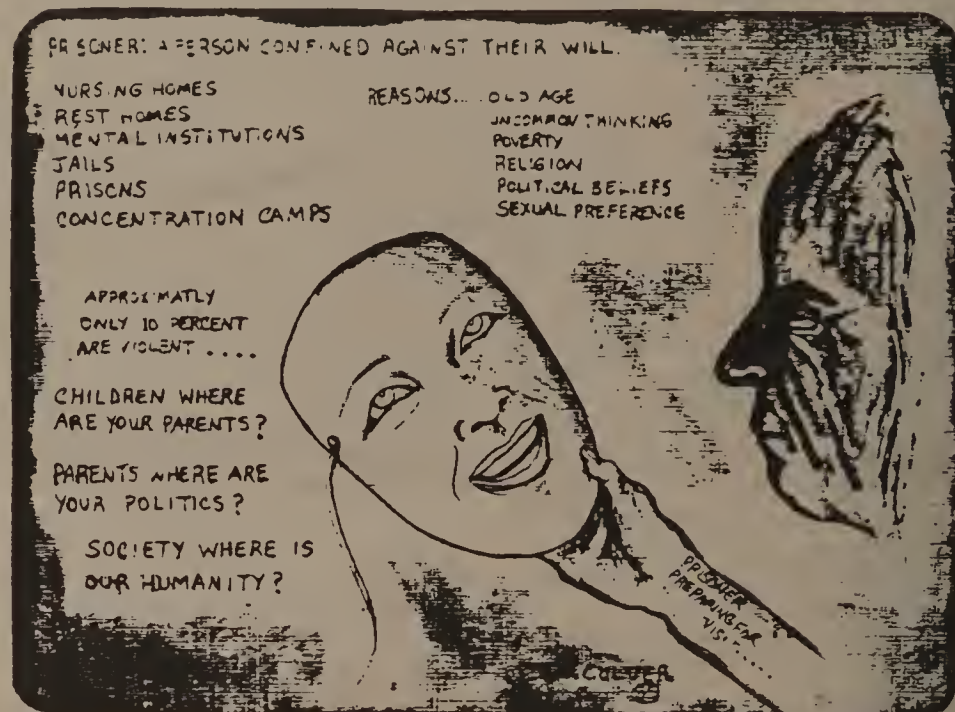 PRISONER: A PERSON CONFINED AGAINST THEIR WILL.
NURSING HOMES
REST HOMES
MENTAL INSTITUTIONS
JAILS
PRISONS
CONCENTRATION CAMPS
REASONS.... OLD AGE
UNCOMMON THINKING
POVERTY
RELIGION
POLITICAL BELIEFS
SEXUAL PREFERENCE
APPROXIMATLY
ONLY 10 PERCENT
ARE VIOLENT ....
CHILDREN WHERE
ARE YOUR PARENTS?
PARENTS WHERE ARE
YOUR POLITICS?
SOCIETY WHERE IS
OUR HUMANITY?
PRISONER
PREPARING FOR